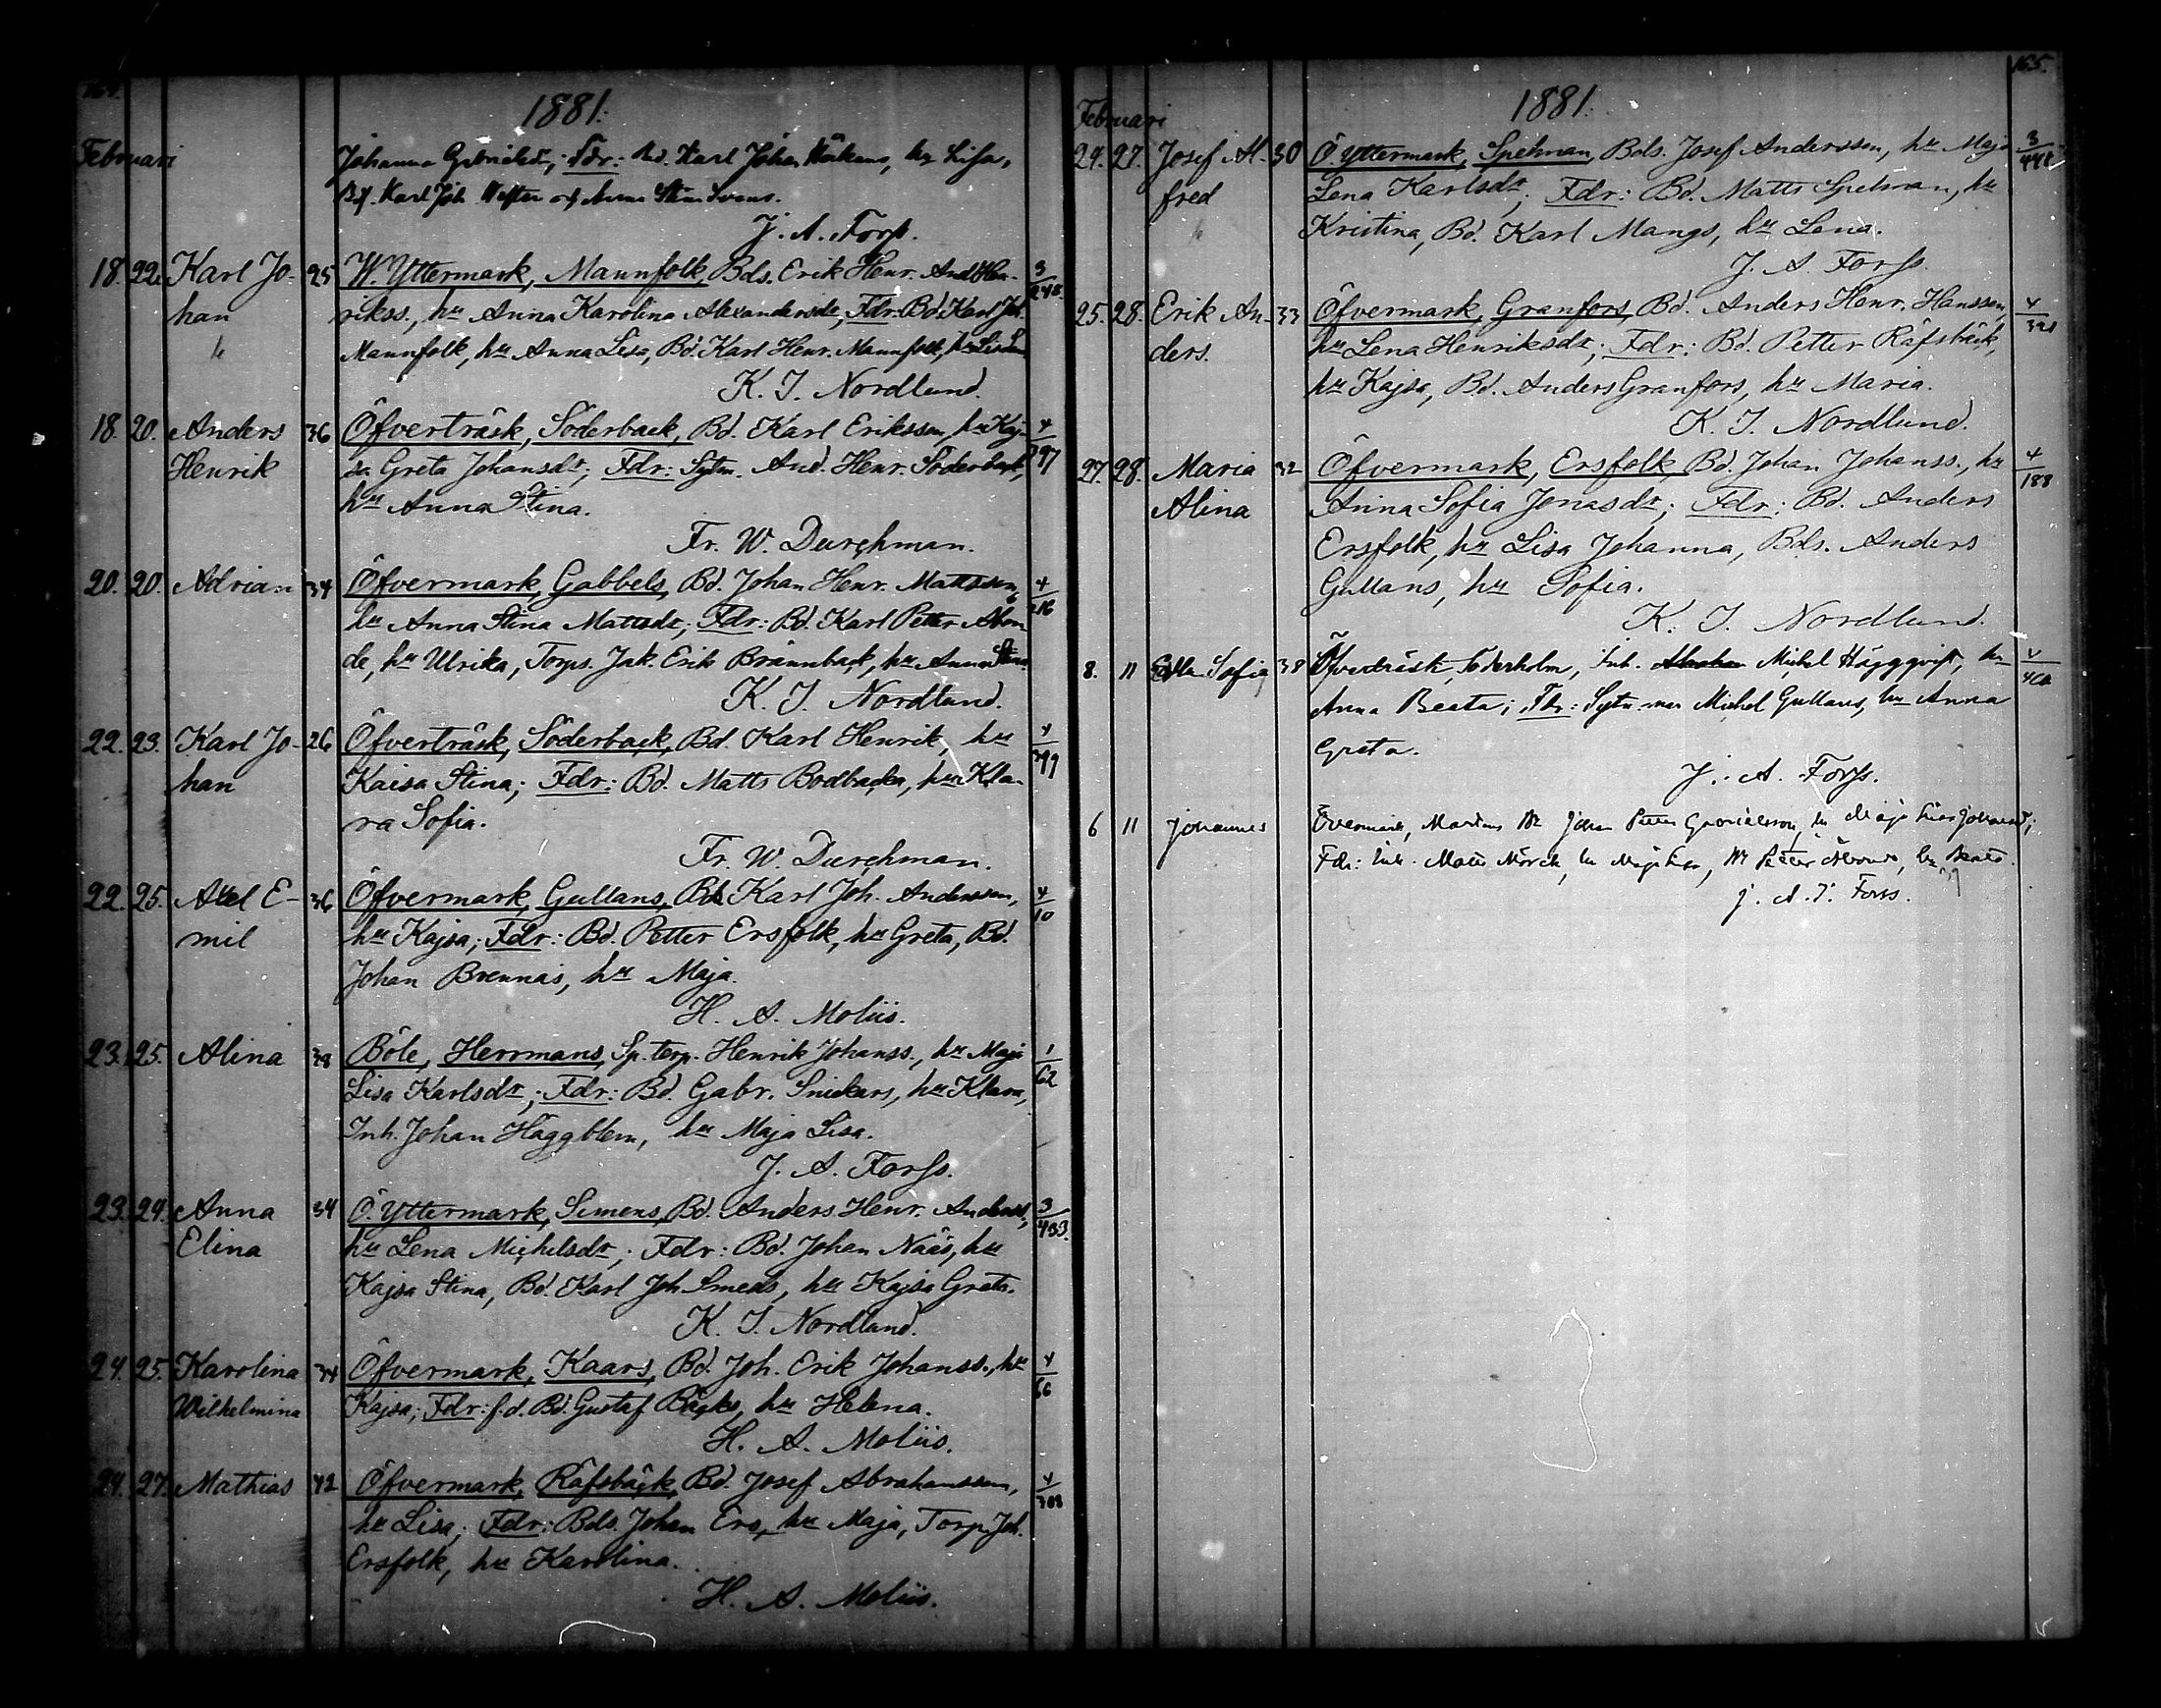 164.
1881.
Februari
Johanna Gabrielsdr; Fdr: Bd. Karl Johan, hu Lisa,
Karl Joh. och Anna Stina Svens.
J. A. Forss.
18. 22. Karl Jo- 25 W. Yttermark, Mannfolk, Bds. Erik Henr. And. Hen- 3/248
han rikss., hu Anna Karolina Alexandersdr, Fdr: Bd. Karl Joh.
Mannfolk, hu Anna Lisa, Bd. Karl Henr. Mannfolk, hu
K. I. Nordlund.
18. 20. Anders 36 Öfverträsk, Söderback, Bd. Karl Eriksson, hu Kaj- 4/397
Henrik sa Greta Johansdr; Fdr: Sytn. And. Henr. Söderback,
hu Anna Stina.
Fr. W. Durchman.
20. 20. Adrian 34 Öfvermark, Gabbels, Bd. Johan Henr. Mattsson, 4/216
hu Anna Stina Mattsdr; Fdr: Bd. Karl Petter Abon-
de, hu Ulrika, Torps. Jak. Erik Brännback, hu Anna Stina.
K. I. Nordlund.
22. 23. Karl Jo- 26 Öfverträsk, Söderback, Bd. Karl Henrik, hu 4/399
han Kaisa Stina; Fdr: Bd. Matts Bodbacka, hu Kla-
ra Sofia.
Fr. W. Durchman.
22. 25. Axel E- 36 Öfvermark, Gullans, Bds Karl Joh. Andersson, 4/10
mil hu Kajsa; Fdr: Bd. Petter Ersfolk, hu Greta, Bd.
Johan Brennäs, hu Maja.
H. A. Moliis.
23. 25. Alina 38 Böle, Herrmans, Sp. torp. Henrik Johanss., hu Maja 1/62
Lisa Karlsdr; Fdr: Bd. Gabr. Snickars, hu Klara,
Inh. Johan Häggblom, hu Maja Lisa.
J. A. Forss.
23. 24. Anna 34 Ö. Yttermark, Simens, Bd. Anders Henr. Anderss., 3/433.
Elina hu Lena Michelsdr; Fdr: Bd. Johan Nääs, hu
Kajsa Stina, Bd. Karl Joh. Smeds, hu Kajsa Greta.
K. I. Nordlund.
24. 25. Karolina 34 Öfvermark, Kaars, Bd. Joh. Erik Johanss., hu 4/66
Wilhelmina Kajsa; Fdr: f.d. Bd. Gustaf Bäcks, hu Helena.
H. A. Moliis.
24. 27. Mathias 42 Öfvermark, Räfsbäck, Bd. Josef Abrahamsson, 4/308
hu Lisa; Fdr: Bds. Johan Ers, hu Maja, Torp. Joh.
Ersfolk, hu Karolina.
H. A. Moliis.
165.
1881.
Februari
24. 27. Josef Al- 30 Ö. Yttermark, Spelman, Bds. Josef Andersson, hu Maja 3/448
fred Lena Karlsdr; Fdr: Bd. Matts Spelman, hu
Kristina, Bd. Karl Mangs, hu Lena.
J. A. Forss.
25. 28. Erik An- 33 Öfvermark, Granfors, Bd. Anders Henr. Hansson, 4/321
ders. hu Lena Henriksdr; Fdr: Bd. Petter Räfsbäck,
hu Kajsa, Bd. Anders Granfors, hu Maria.
K. I. Nordlund.
27. 28. Maria 32 Öfvermark, Ersfolk, Bd. Johan Johanss., hu 4/188
Alina Anna Sofia Jonasdr; Fdr: Bd. Anders
Ersfolk, hu Lisa Johanna, Bds. Anders
Gullans, hu Sofia.
K. I. Nordlund.
8. 11 Edla Sofia 38 Öfverträsk, Söderholm, Inh. Michel Häggqvist, hu
Anna Beata; Fdr: Sytn.man Michel Gullans, hu Anna
Greta.
J. A. Forss.
6 11 Johannes Övermark, Martens Bd. Johan Petter Gabrielsson, hu Maja Lisa Johansd;
Fdr: Inh. Matts Mörck, hu Maja Lisa, Bd. Petter Åbonde, hu Beata.
J. A. I. Forss.